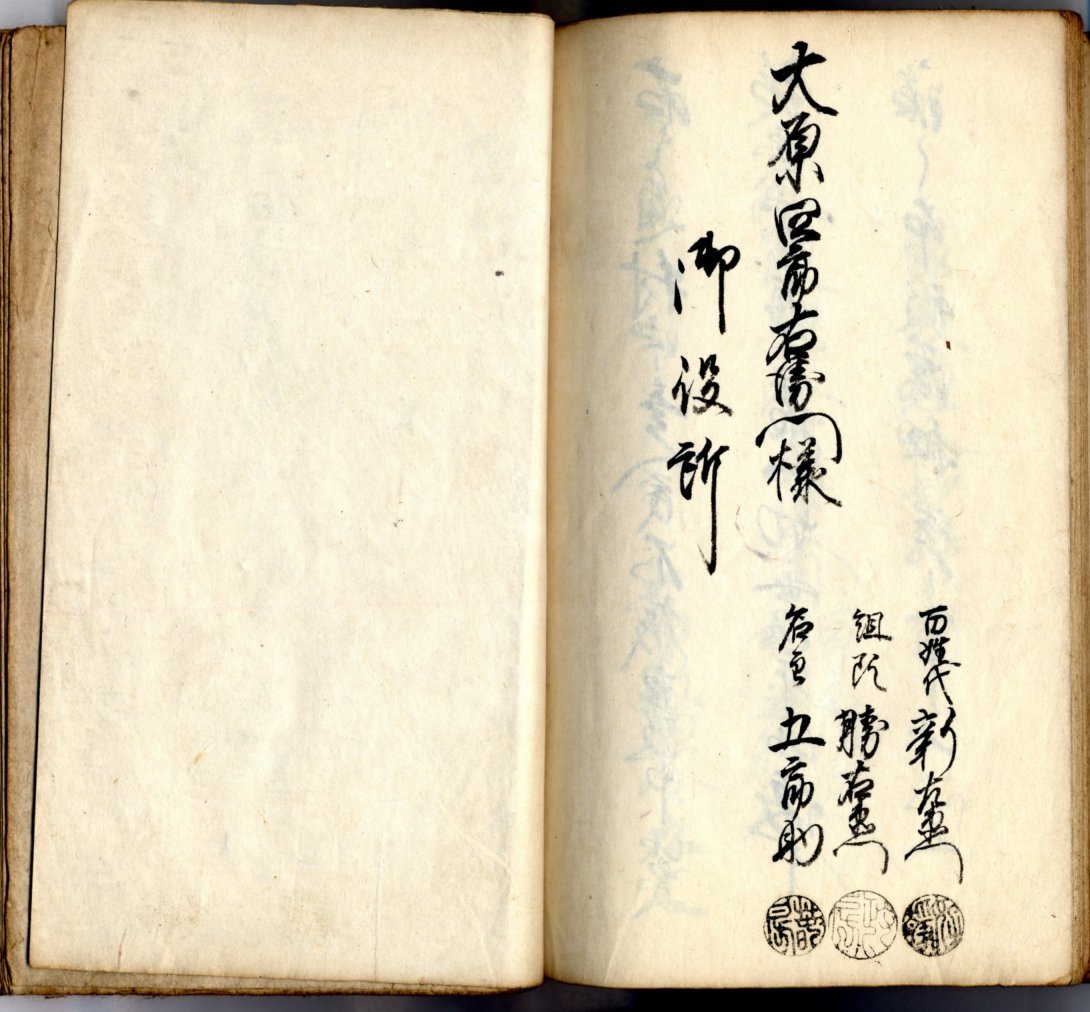 百姓代 新左衛門
組頭 勝右衛門
名主 五郎助
大原四郎右衛門様
御役所